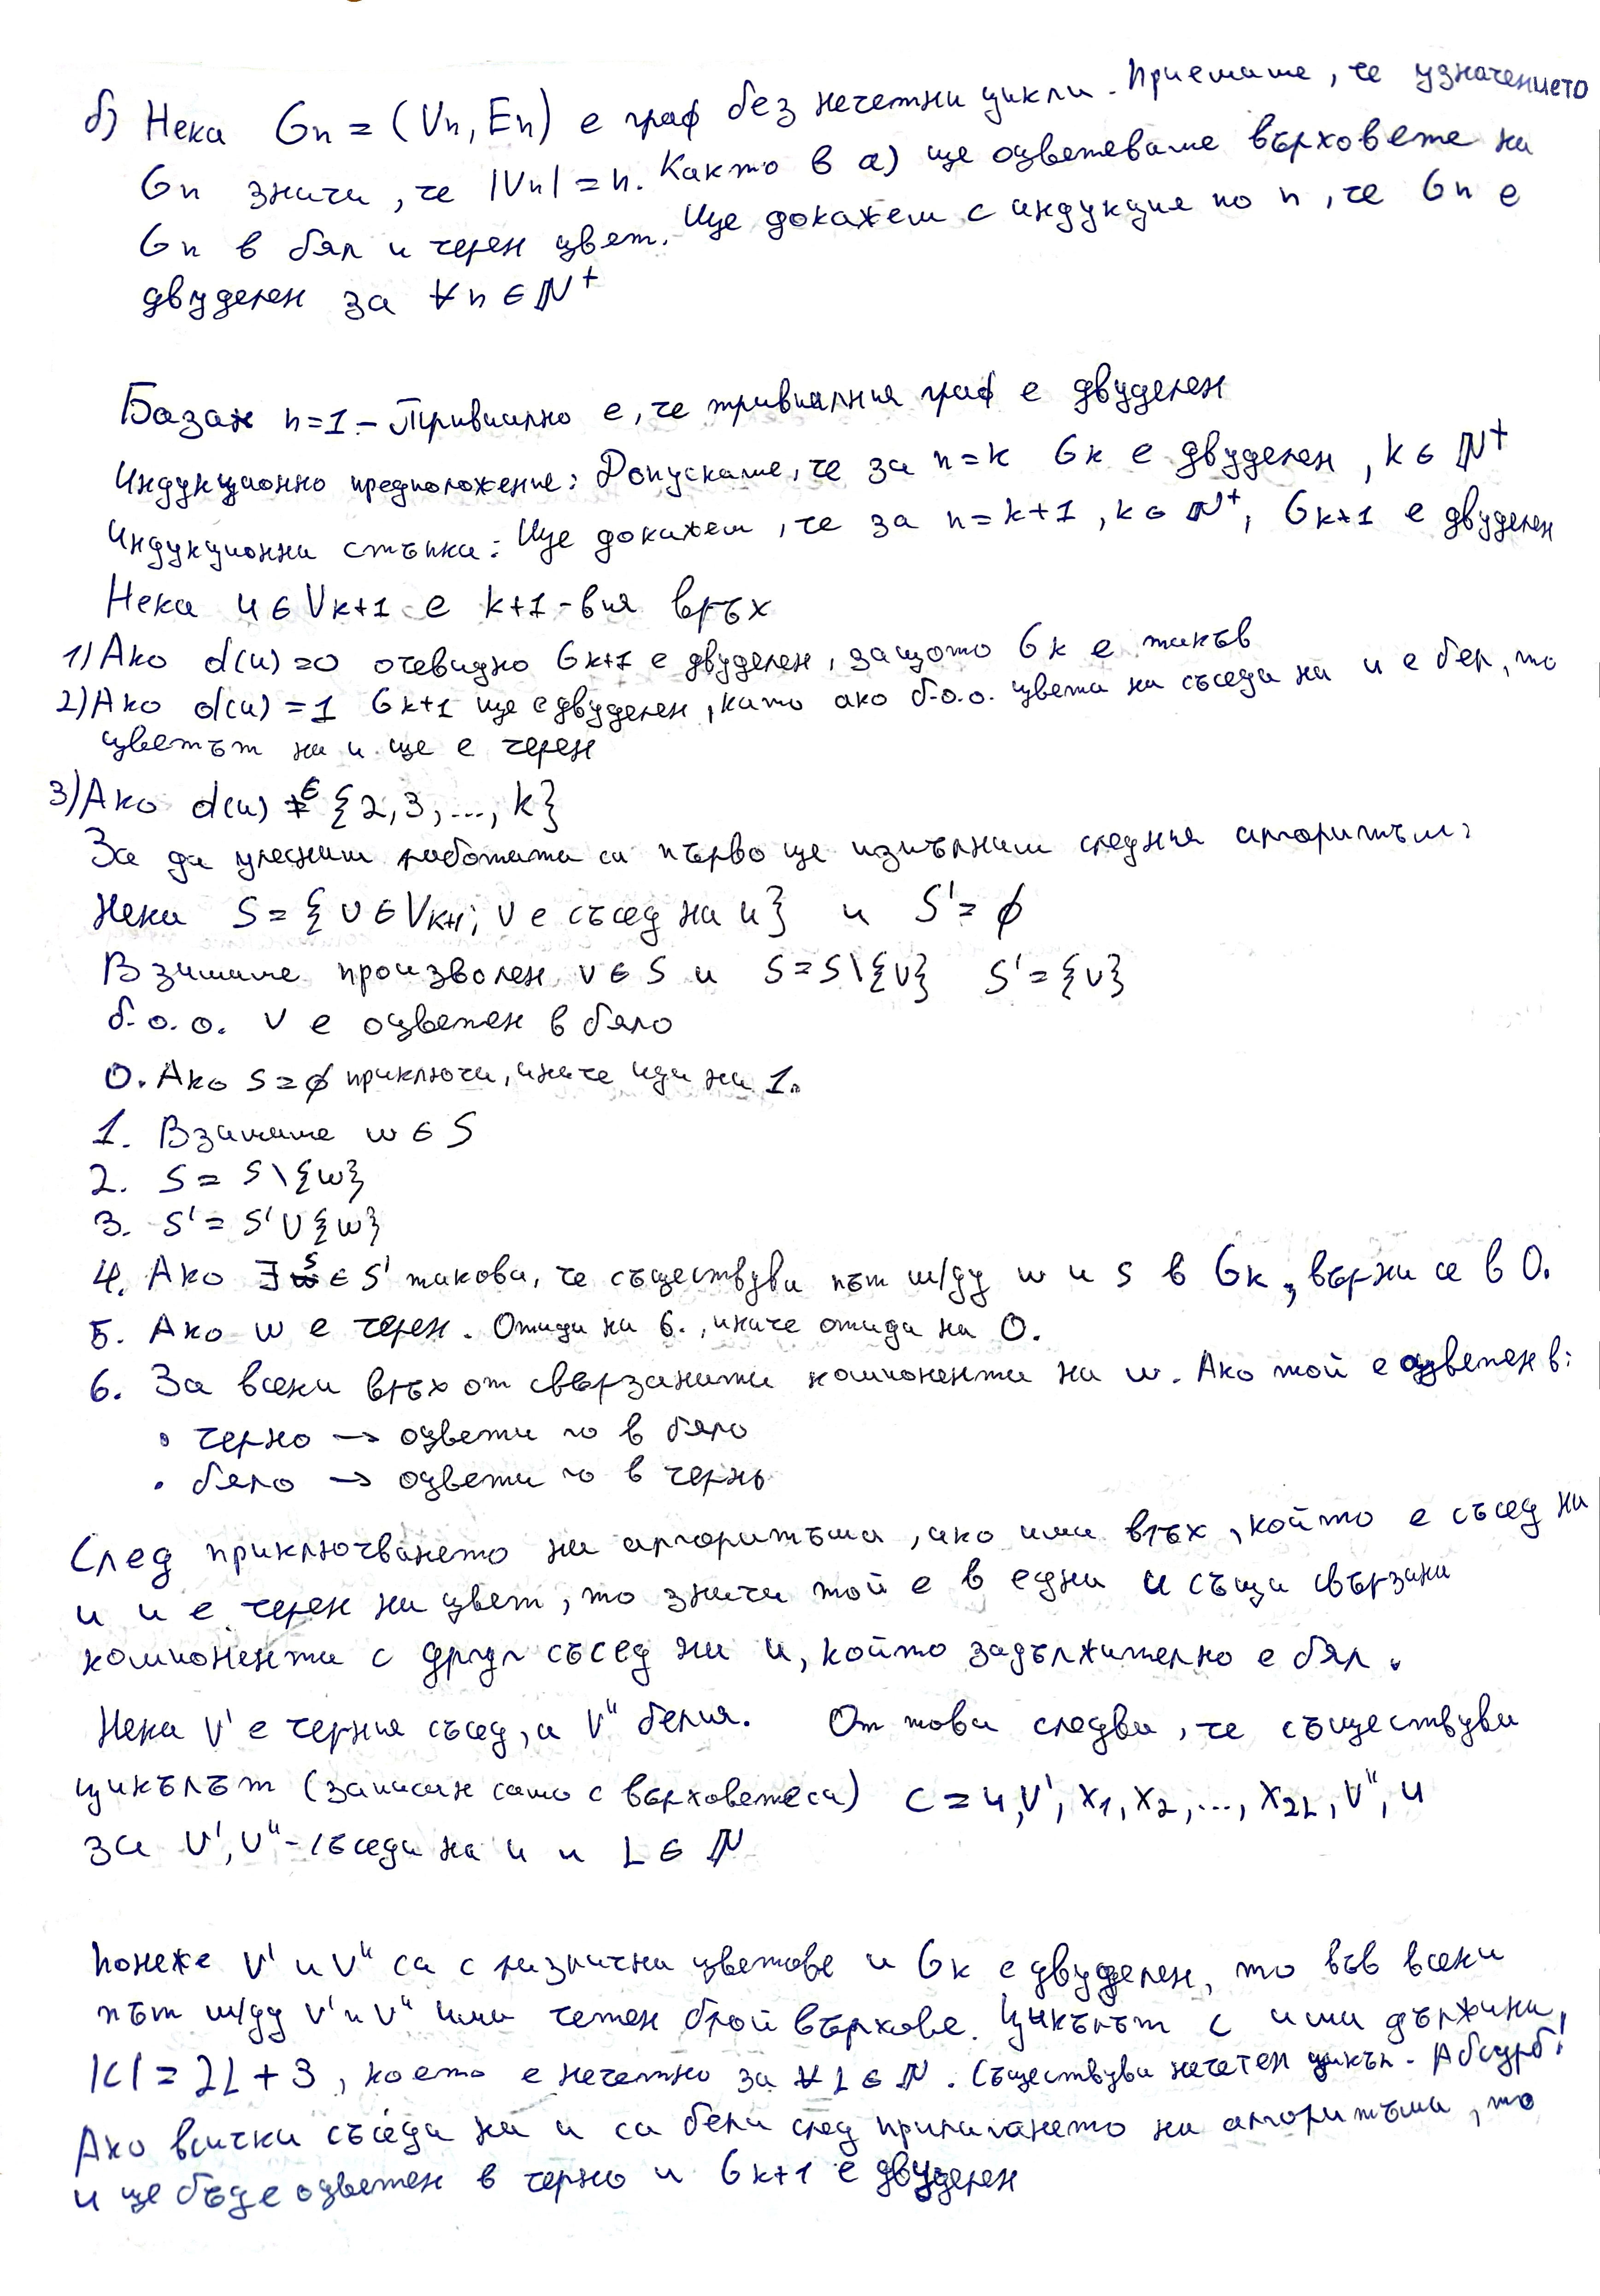 б) Нека Gn = (Vn, En) е граф без нечетни цикли. Приемаме, че узначението
Gn значи, че |Vn| = n. Както в а) ще оцветеваме върховете на
Gn в бял и черен цвят. Ще докажем с индукция по n, че Gn е
двуделен за ∀n ∈ ℕ⁺
База n=1 – Тривиално е, че тривиалния граф е двуделен
Индукционно предположение: Допускаме, че за n=k Gk е двуделен, k ∈ ℕ⁺
Индукционна стъпка: Ще докажем, че за n=k+1, k ∈ ℕ⁺, Gk+1 е двуделен
Нека u ∈ Vk+1 е k+1-вия връх
1) Ако d(u)=0 очевидно Gk+1 е двуделен, защото Gk е такъв
2) Ако d(u)=1 Gk+1 ще е двуделен, като ако б.о.о. цвета на съседа на u е бял, то
цветът на u ще е черен
3) Ако d(u) ∈ {2,3,...,k}
За да улесним работата си първо ще изпълним следния алгоритъм:
Нека S = {v ∈ Vk+1; v е съсед на u} и S' = ∅
Взимаме произволен v ∈ S и S = S\{v} S' = {v}
б.о.о. v е оцветен в бяло
0. Ако S = ∅ приключи, иначе иди на 1.
1. Взимаме w ∈ S
2. S = S\{w}
3. S' = S' ∪ {w}
4. Ако ∃ s ∈ S' такова, че съществува път м/ду w и s в Gk, върни се в 0.
5. Ако w е черен. Отиди на 6., иначе отиди на 0.
6. За всеки връх от свързаната компонента на w. Ако той е оцветен в:
• черно → оцвети го в бяло
• бяло → оцвети го в черно
След приключването на алгоритъма, ако има връх, който е съсед на
u и е черен на цвят, то значи той е в една и съща свързана
компонента с друг съсед на u, който задължително е бял.
Нека v' е черния съсед, а v'' белия. От това следва, че съществува
цикълът (записан само с върховете са) c = u, v', x₁, x₂, ..., x₂L, v'', u
за v', v'' - съседи на u и L ∈ ℕ
Понеже v' и v'' са с различни цветове и Gk е двуделен, то във всеки
път м/ду v' и v'' има четен брой върхове. Цикълът c има дължина
|c| = 2L + 3, което е нечетно за ∀L ∈ ℕ. Съществува нечетен цикъл. Абсурд!
Ако всички съседи на u са бели след прилагането на алгоритъма, то
u ще бъде оцветен в черно и Gk+1 е двуделен